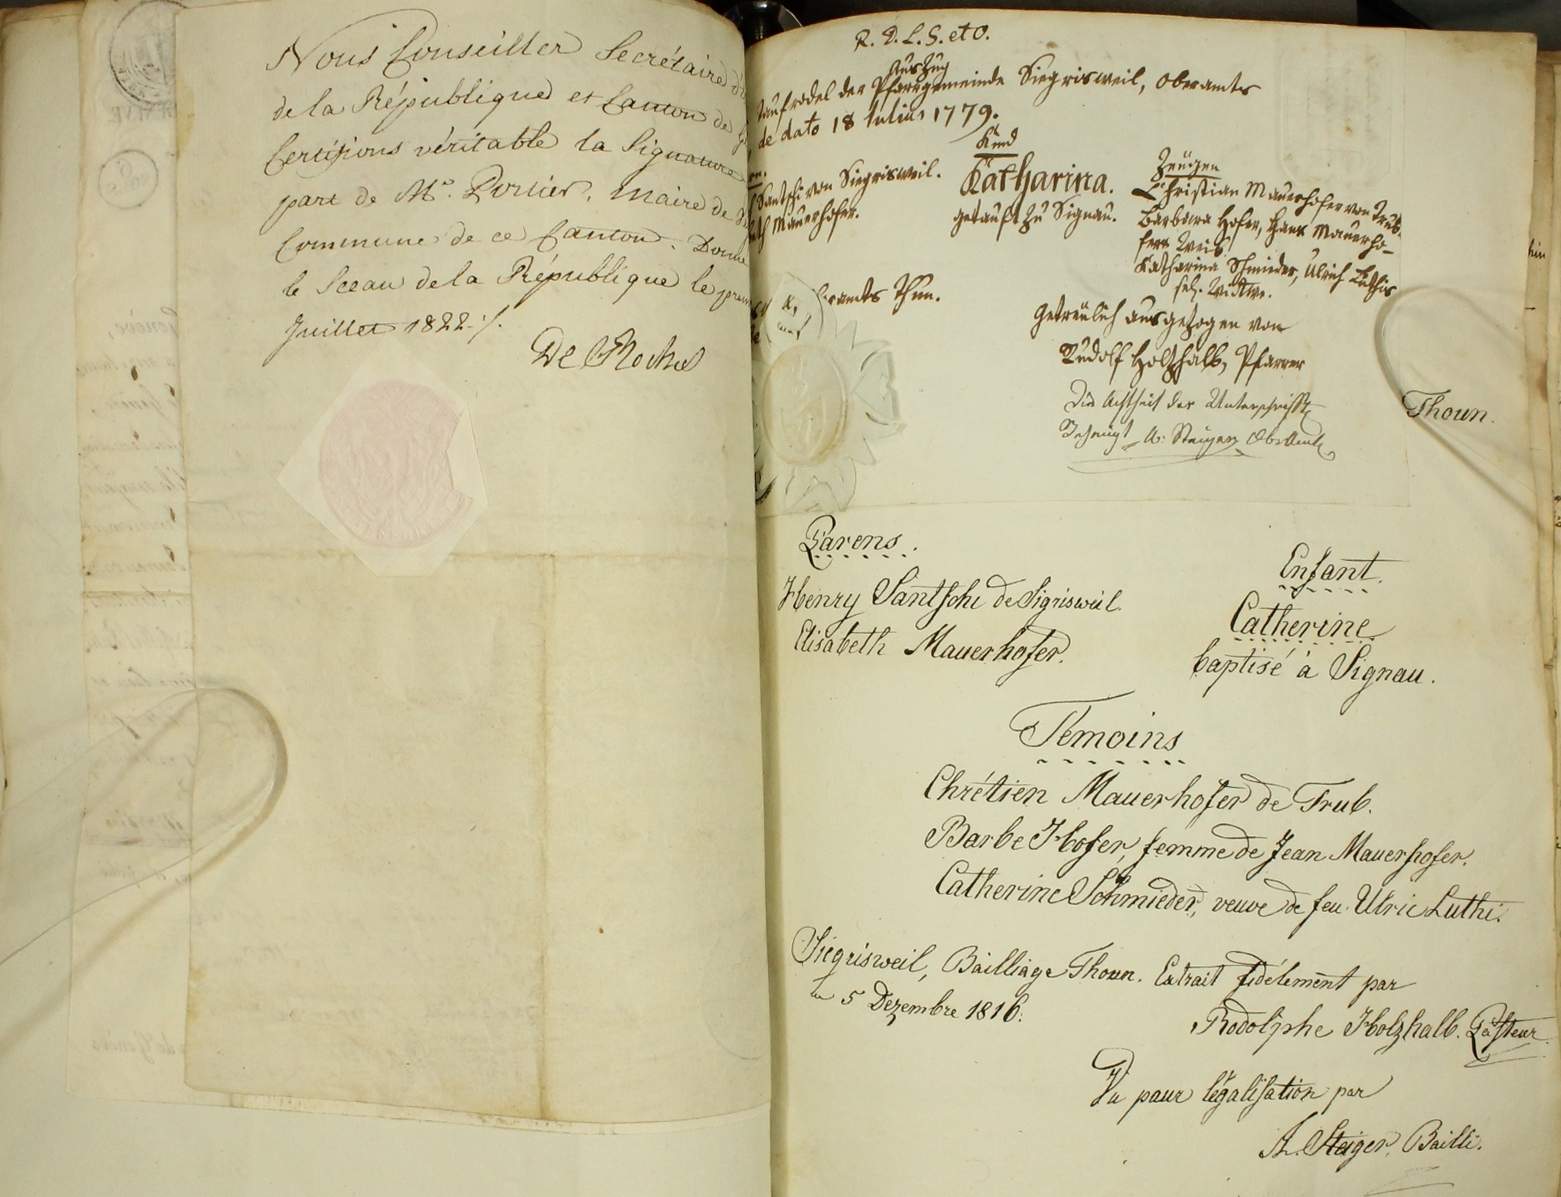 Nous Conseiller Secrétaire d'
de la République et Canton de G
Certifions véritable la Signature
part de Mr. Portier, Maire de
Commune de ce Canton. Donné
le Sceau de la République le prem
Juillet 1822 ./.
De Roches
R. D. L. S. et O.
Auszug
Taufrodel der Pfarrgemeinde Siegrisweil, Oberamts
de dato 18 Julius 1779.
Kind
Zeugen
Santschi von Siegrisweil.
Katharina.
Christian Mauerhofer von Trub.
Mauerhofer.
getauft zu Signau.
Barbara Hofer, Hans Mauerho-
fers Weib.
Katharina Schmieder, Ulrich Lüthis
sel. Wittwe.
Oberamts Thun.
Getreülich ausgezogen von
Rudolf Holzhalb, Pfarrer
Die Ächtheit der Unterschrift
Bezeugt A. Steiger Obr Amtm
Thoun.
Parens.
Enfant.
Henry Santschi de Sigrisweil.
Catherine
Elisabeth Mauerhofer.
baptisé à Signau.
Témoins
Chrétien Mauerhofer de Trub.
Barbe Hofer, femme de Jean Mauerhofer.
Catherine Schmieder, veuve de feu Ulric Luthi.
Siegrisweil, Bailliage Thoun. Extrait fidélement par
le 5 Dezembre 1816.
Rodolphe Holzhalb. Pasteur.
Vu pour légalisation par
A. Steiger, Bailli.